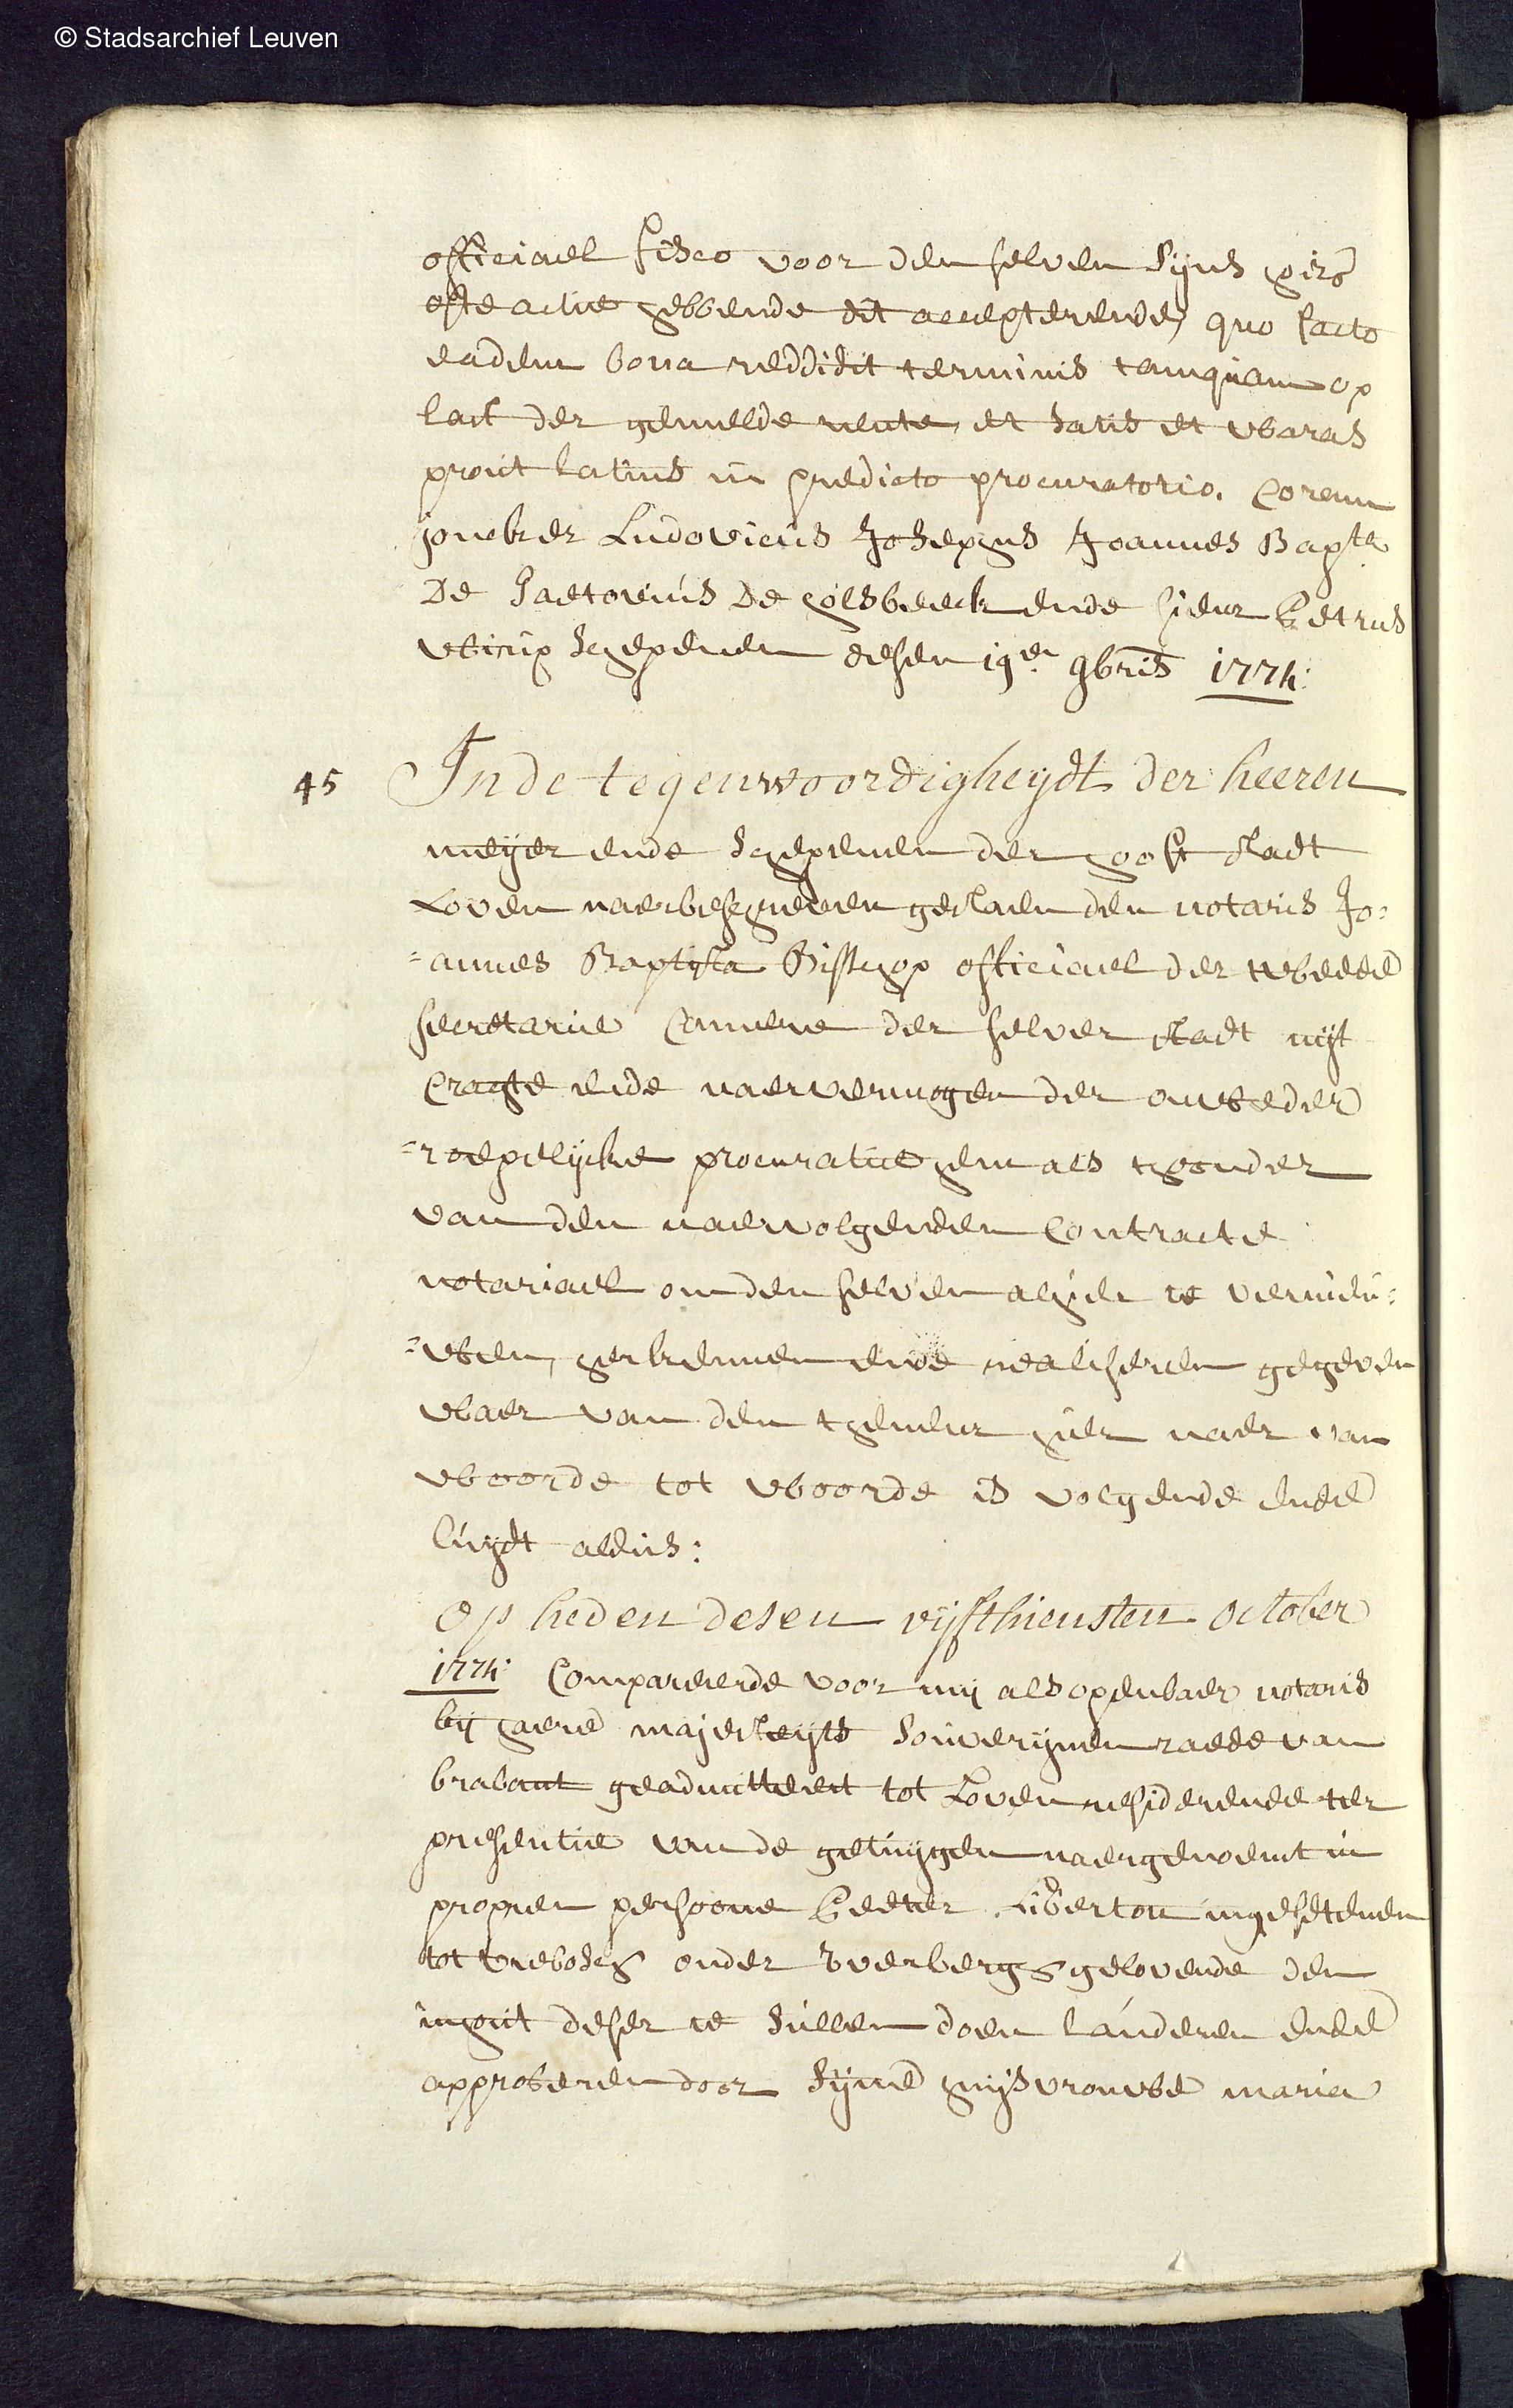 © Stadsarchief Leuven
officiael fisco voor den selven sijns hirs
ofte actie hebbende dit accepterende, quo facto
eadem bona reddidit terminis tamquam op
last der gemelde rente, et satis et waras
prout latius in predicto procuratorio. Coram
joncker Ludovicus Josephus Joannes Bapta
De de ende sieur Petrus
schepenen desen 19en 9bris 1774:
45 In de tegenwoordigheydt der heeren
meyer ende schepenen der hooft stadt
Loven naerbeschreven gestaen den notaris Jo=
=annes Baptista Bisschop officiael der tweede
secretarie Camere der selver stadt uijt
Crachte ende naervermogen der onweder
=roepelijcke procuratie hem als thonder
van den naervolgenden Contracte
notariael om den selven alhier te vernieu=
=wen, herkennen ende realiseren gegeven
waer van den theneur hier naer van
woorde tot woorde is volgende ende
luijdt aldus:
Op heden desen vijfthiensten october
1774: Compareerde voor mij als openbaer notaris
bij haere majesteyts souverijnen raede van
brabant geadmitteert tot Loven residerende ter
presentie van de getuijgen naergenoemt in
propren persoone Peeter Liberton ingesetenen
tot onder gelovende den
inhout deser te sullen doen lauderen ende
approberen door sijne huijsvrouwe maria